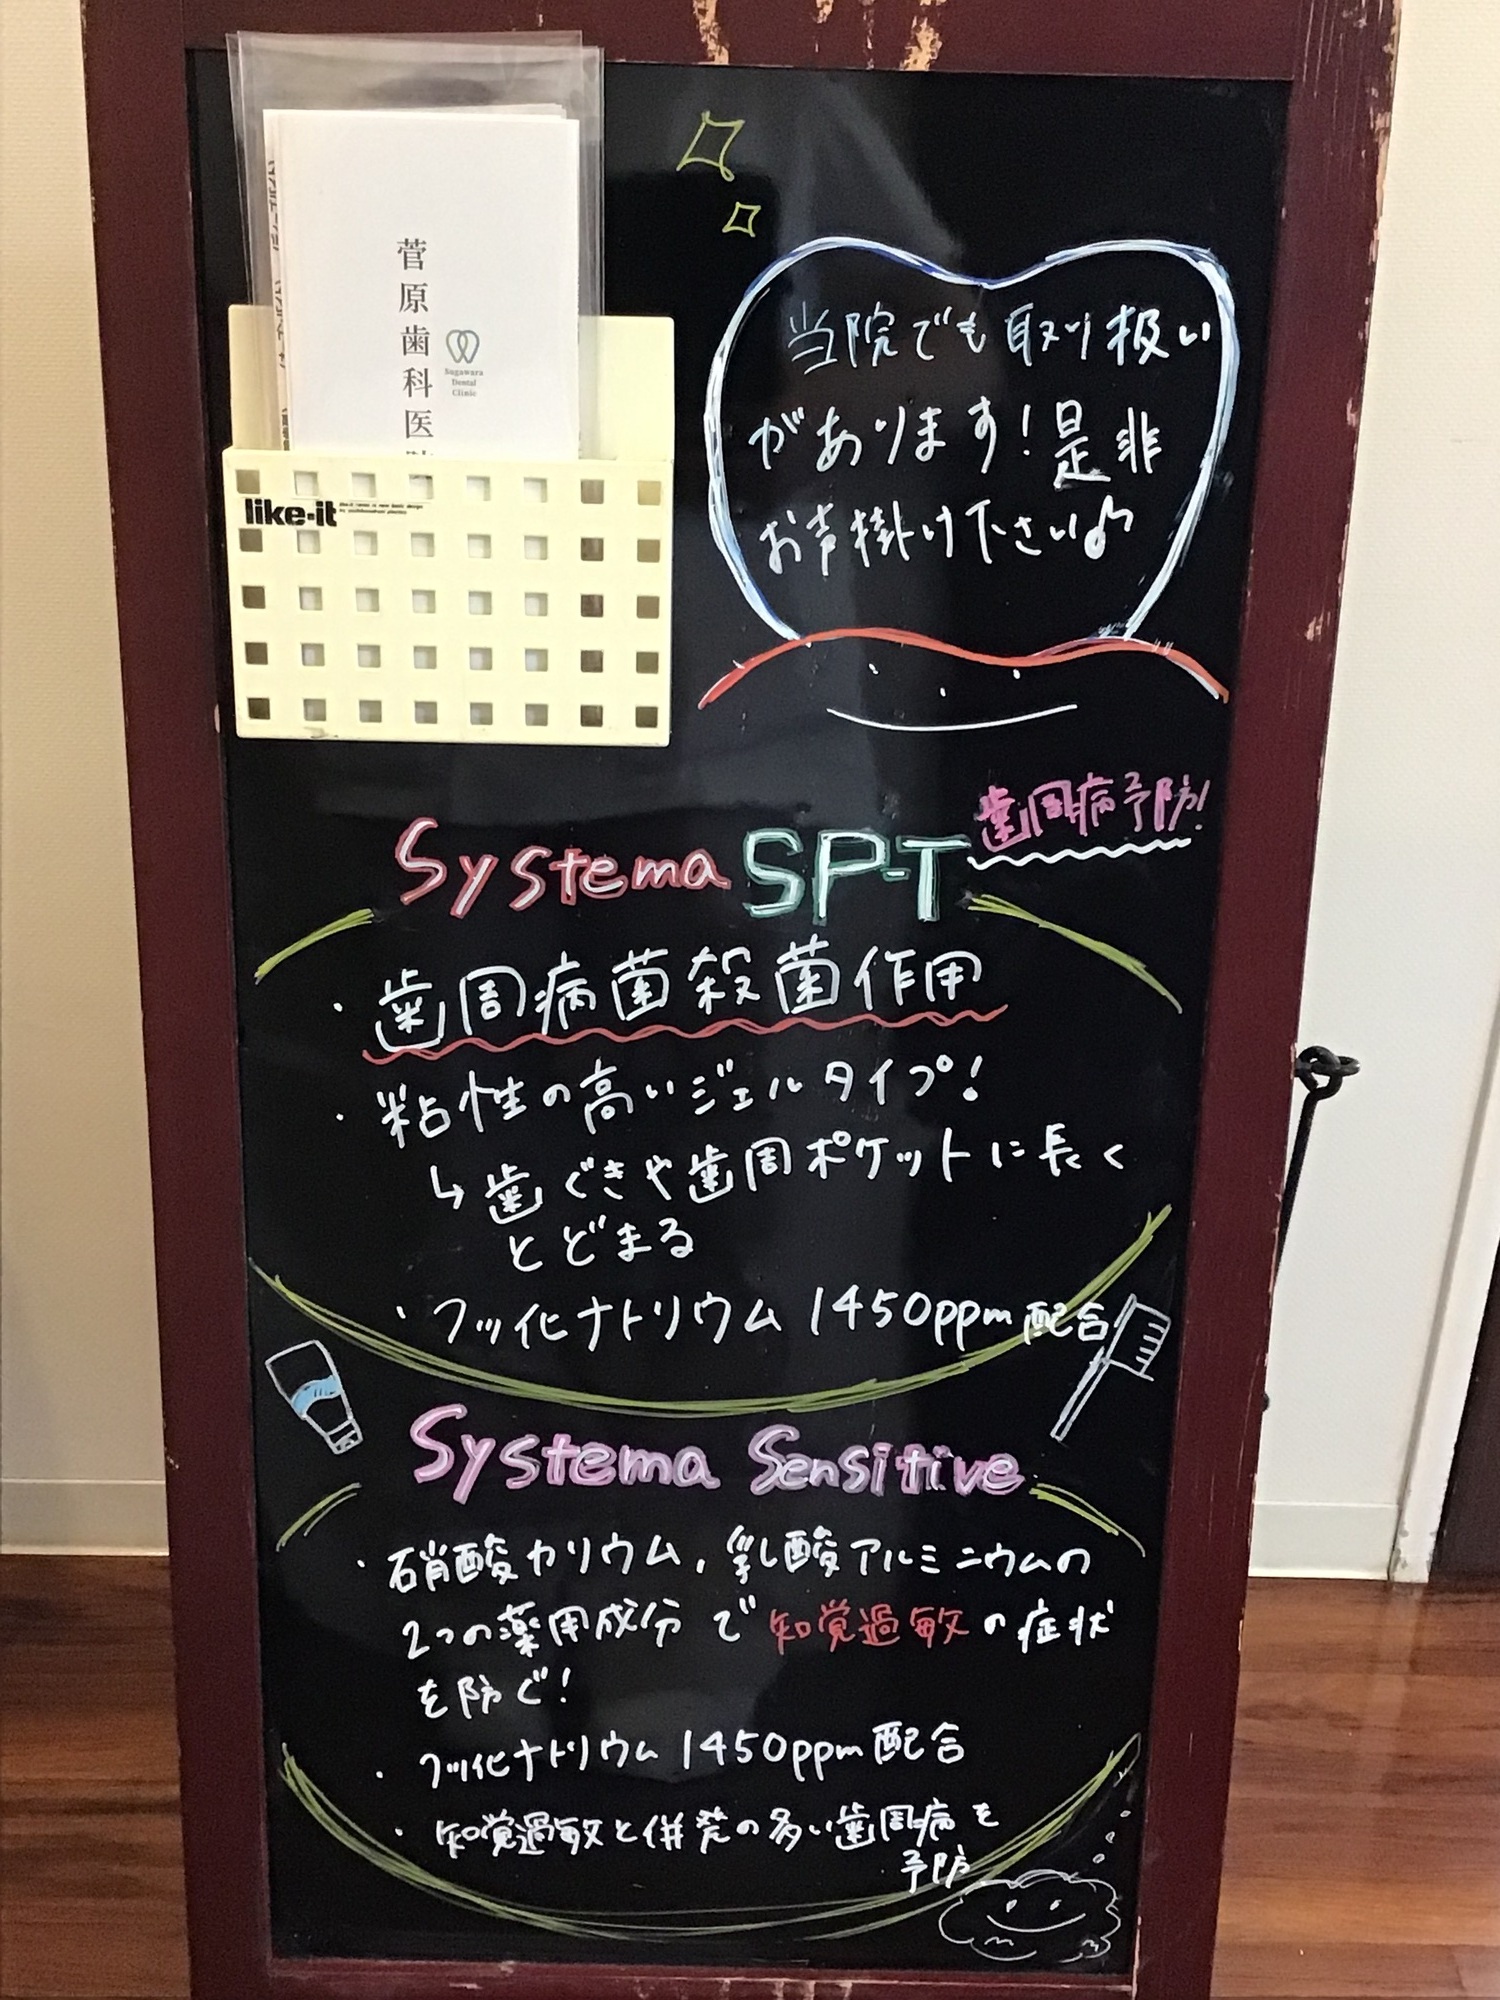 菅原歯科医
Sugawara
Dental
Clinic
like-it
当院でも取り扱い
があります!是非
お声掛け下さい♪
歯周病予防!
Systema SP-T
・歯周病菌殺菌作用
・粘性の高いジェルタイプ!
↳歯ぐきや歯周ポケットに長く
とどまる
・フッ化ナトリウム 1450ppm配合
Systema Sensitive
・硝酸カリウム,乳酸アルミニウムの
2つの薬用成分で知覚過敏の症状
を防ぐ!
・フッ化ナトリウム 1450ppm配合
・知覚過敏と併発の多い歯周病を
予防